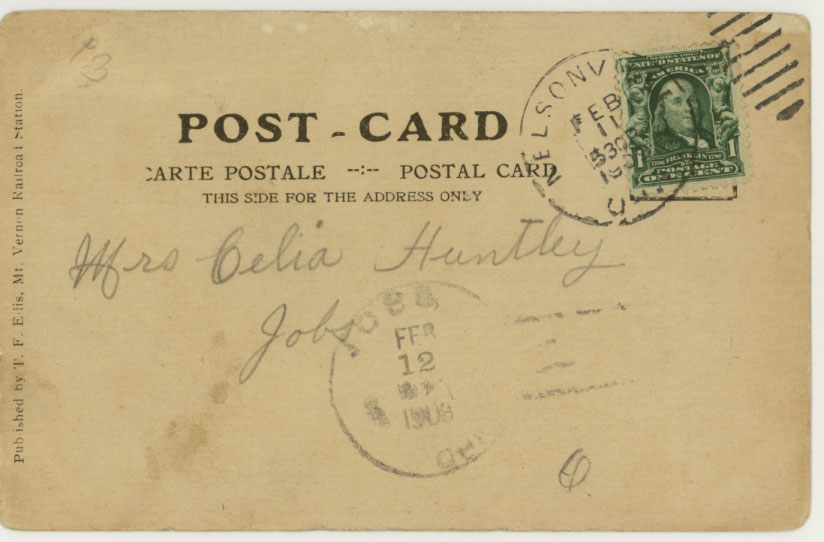 13
POST - CARD
CARTE POSTALE --:-- POSTAL CARD
THIS SIDE FOR THE ADDRESS ONLY
Mrs Celia Huntley
Jobs
O
Published by T. F. Ellis, Mt. Vernon Railroad Station.
NELSONV
FEB
11
530P
UNITED STATES OF
AMERICA
FRANKLIN
POSTAGE
1 ONE CENT 1
JOBS
FEB
12
1908